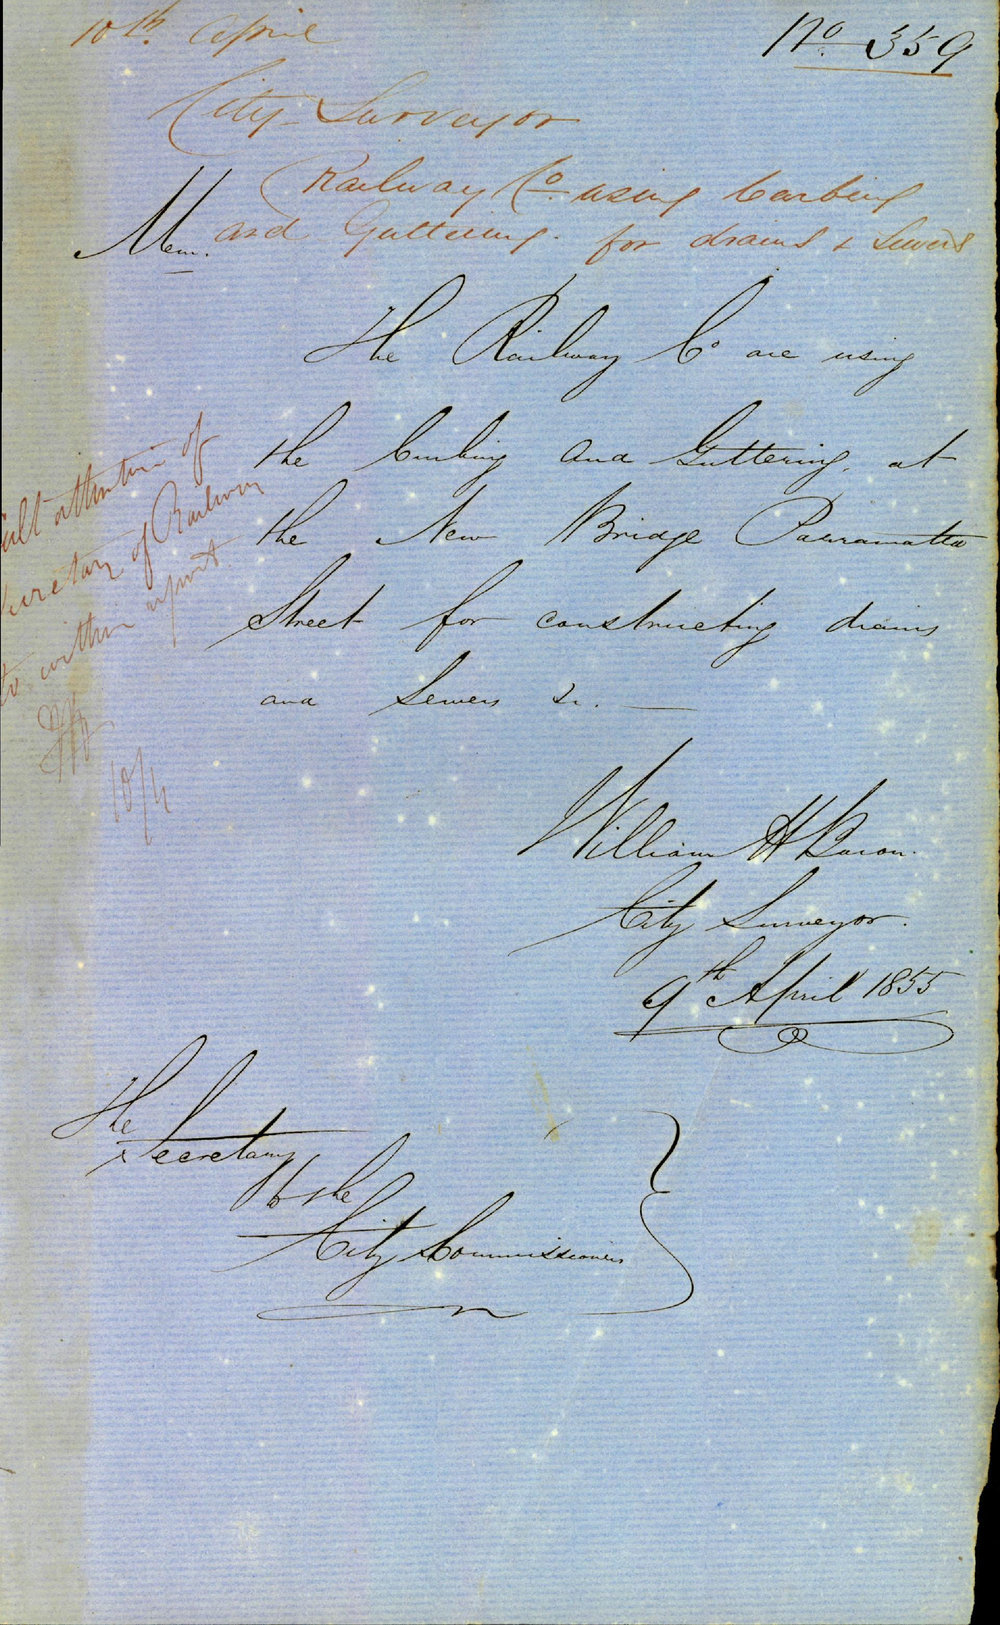 10th. April
No. 359
City Surveyor
Railway Co. using Carbing
and Guttering. for drains & Sewers
Mem.
The Railway Co are using
the Curbing and Guttering, at
the New Bridge Parramatta
Street for constructing drains
and Sewers &c. —
attention of
Secretary of Railway
to within report
10/4
William H Bacon.
City Surveyor.
9th April 1855
The
Secretary
to the
City Commissioners